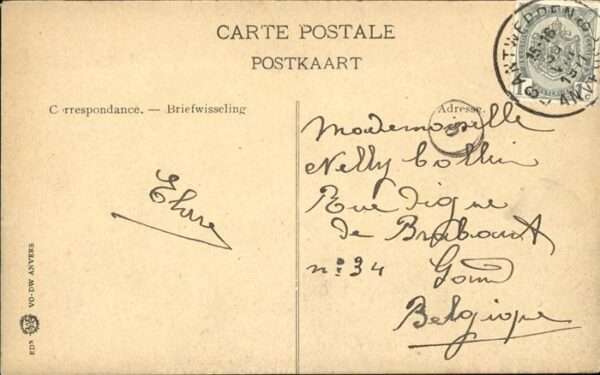 CARTE POSTALE
POSTKAART
Correspondance. — Briefwisseling
Adresse.
Mademoiselle
Nelly Collin
Rue Digue
de Brabant
n:º 34 Gand
Belgique
EDN VO-DW ANVERS
ANTWERPEN
ANVERS